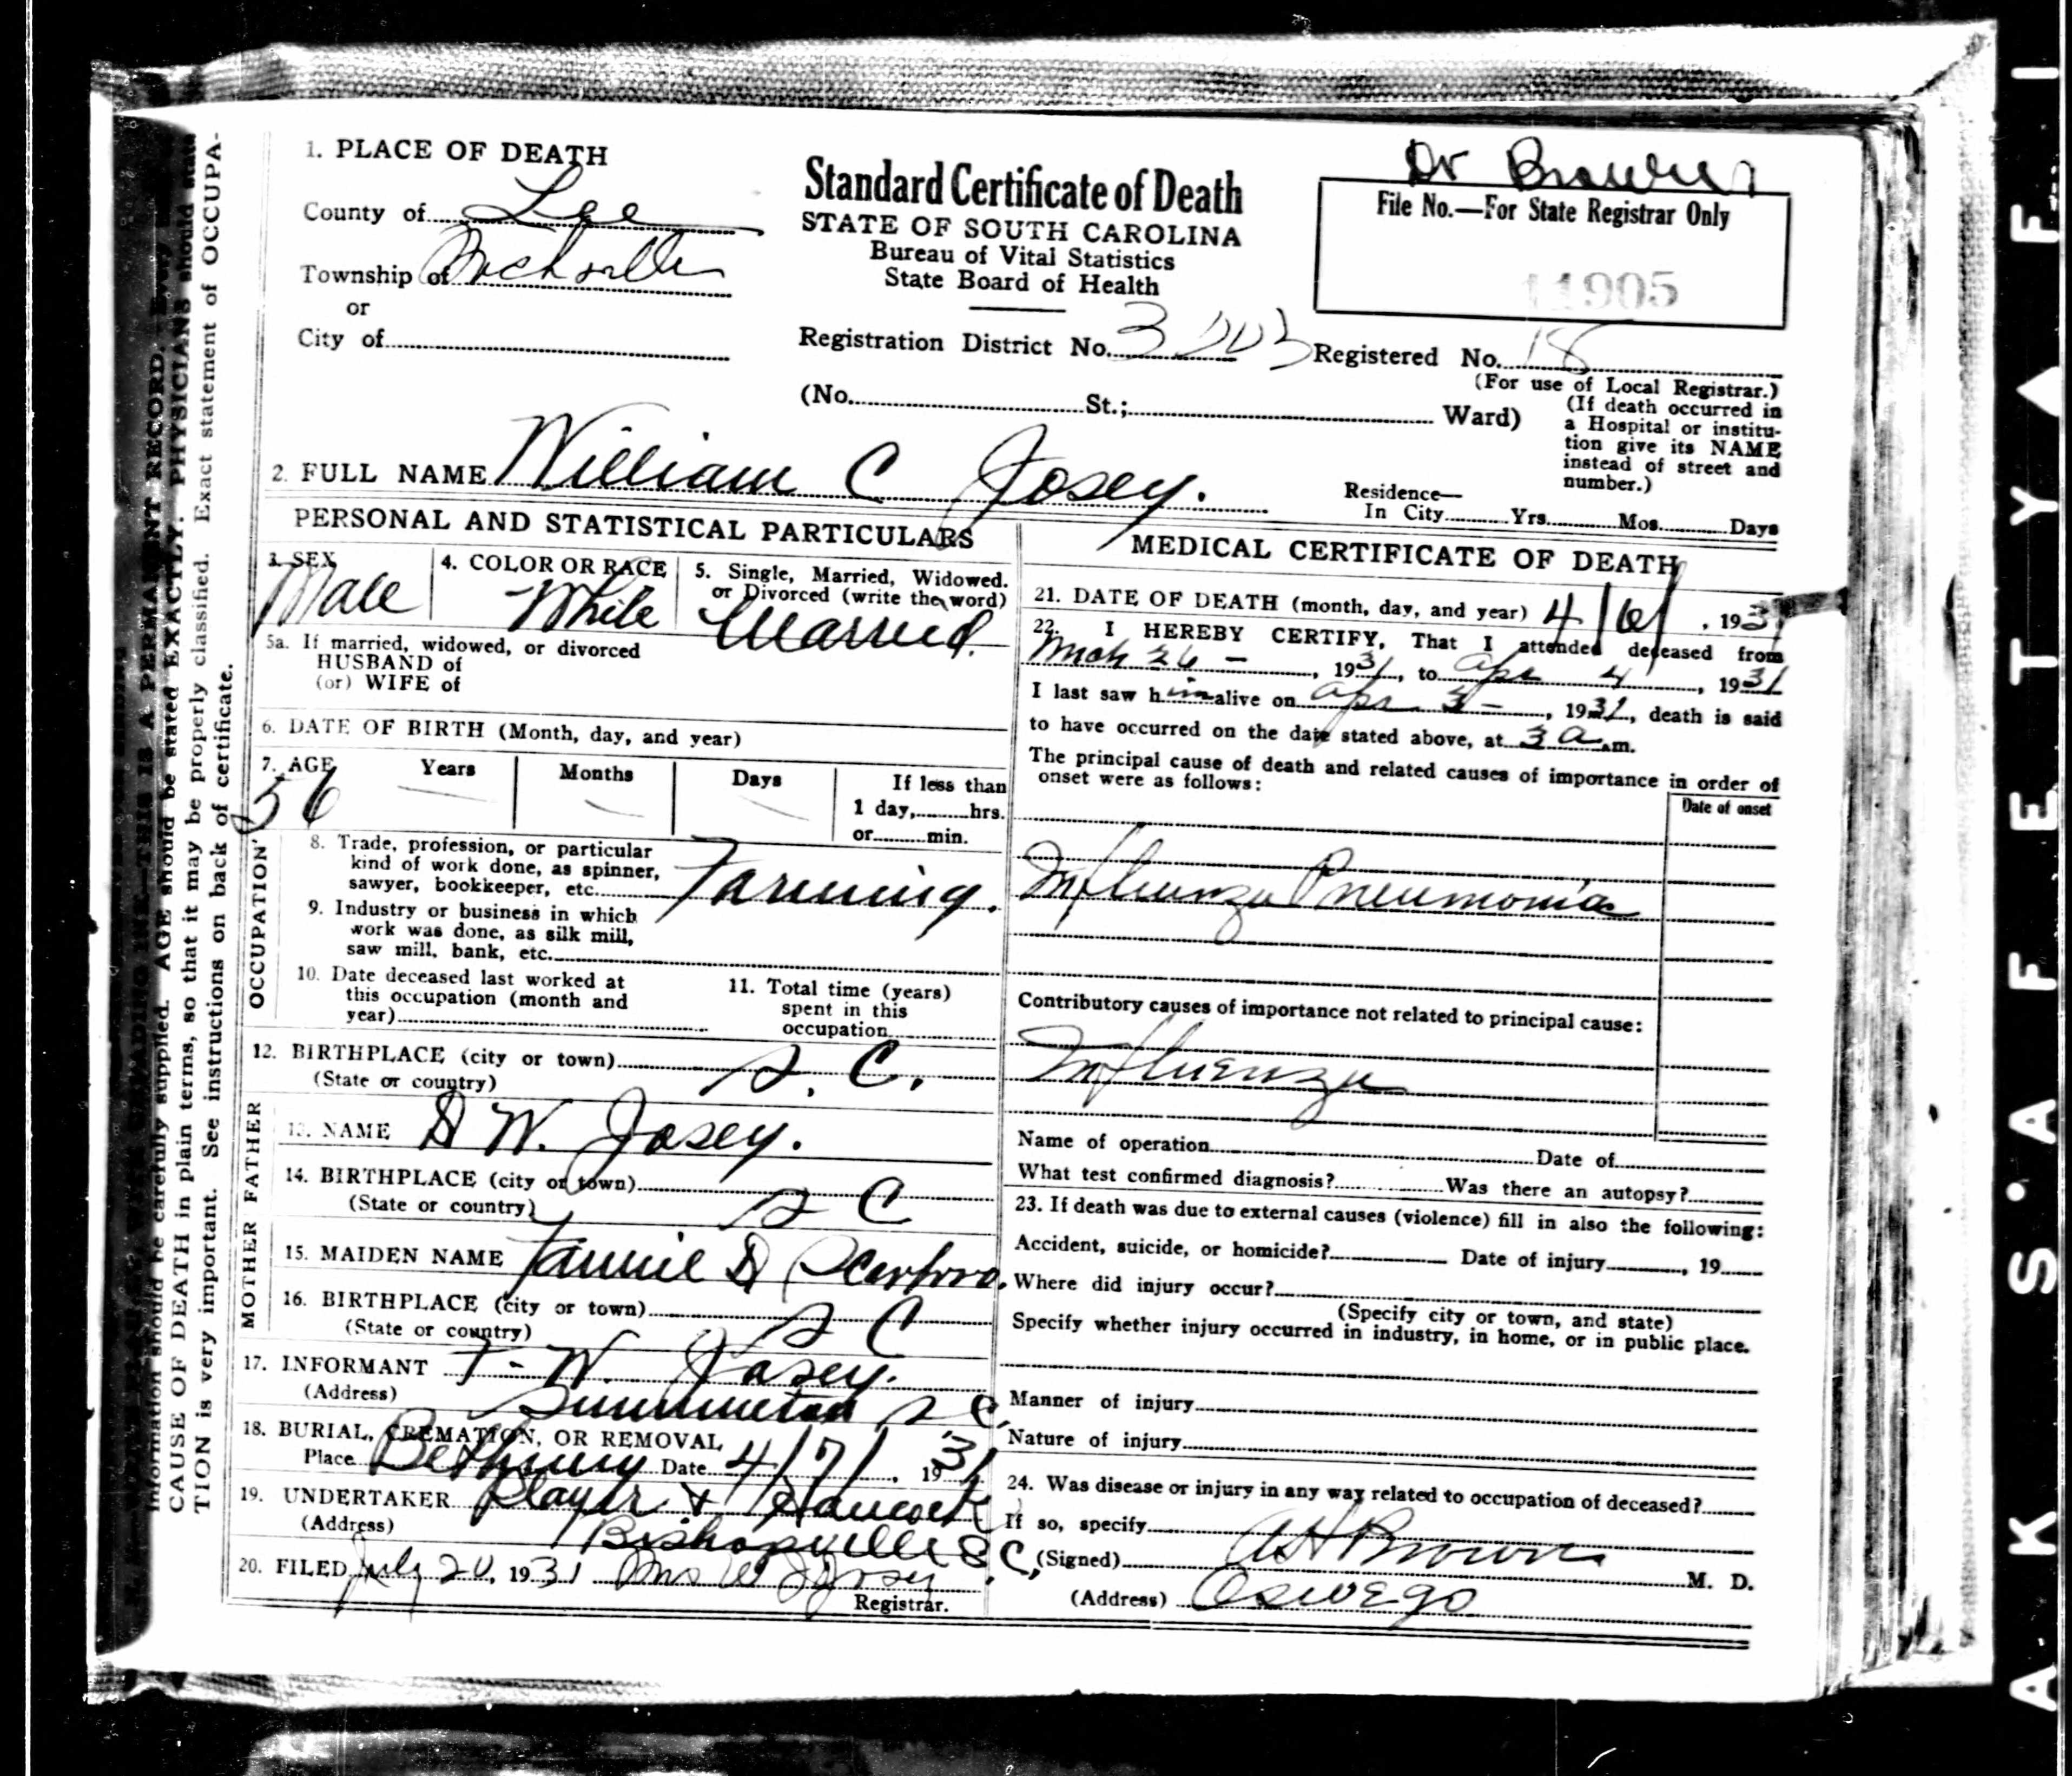 Dr Brown
1. PLACE OF DEATH
County of Lee
Township of
or
City of
Standard Certificate of Death
STATE OF SOUTH CAROLINA
Bureau of Vital Statistics
State Board of Health
File No.—For State Registrar Only
11905
Registration District No. 3003 Registered No. 18
(For use of Local Registrar.)
(No. St.; Ward)
(If death occurred in
a Hospital or institu-
tion give its NAME
instead of street and
number.)
2. FULL NAME William C Josey.
Residence—
In City Yrs. Mos. Days
PERSONAL AND STATISTICAL PARTICULARS
3. SEX
Male
4. COLOR OR RACE
White
5. Single, Married, Widowed.
or Divorced (write the word)
Married.
5a. If married, widowed, or divorced
HUSBAND of
(or) WIFE of
6. DATE OF BIRTH (Month, day, and year)
7. AGE Years Months Days If less than
56
1 day, hrs.
or min.
OCCUPATION
8. Trade, profession, or particular
kind of work done, as spinner,
sawyer, bookkeeper, etc. Farming.
9. Industry or business in which
work was done, as silk mill,
saw mill, bank, etc.
10. Date deceased last worked at
this occupation (month and
year)
11. Total time (years)
spent in this
occupation
12. BIRTHPLACE (city or town) S. C.
(State or country)
FATHER
13. NAME D W. Josey.
14. BIRTHPLACE (city or town)
(State or country) S C
MOTHER
15. MAIDEN NAME Fannie D Scarboro.
16. BIRTHPLACE (city or town) S C
(State or country)
17. INFORMANT T. W. Josey.
(Address) Summerton S C.
18. BURIAL, CREMATION, OR REMOVAL
Place Bethany Date 4/7/, 1931
19. UNDERTAKER Player & Hancock
(Address) Bishopville S C,
20. FILED July 20, 1931 Mrs W J Josey
Registrar.
MEDICAL CERTIFICATE OF DEATH
21. DATE OF DEATH (month, day, and year) 4/6/, 1931
22. I HEREBY CERTIFY, That I attended deceased from
Mch 26 -, 1931, to Apr 4, 1931
I last saw him alive on Apr 3 -, 1931, death is said
to have occurred on the date stated above, at 3 a.m.
The principal cause of death and related causes of importance in order of
onset were as follows:
Date of onset
Influenza Pneumonia
Contributory causes of importance not related to principal cause:
Influenza
Name of operation Date of
What test confirmed diagnosis? Was there an autopsy?
23. If death was due to external causes (violence) fill in also the following:
Accident, suicide, or homicide? Date of injury, 19
Where did injury occur?
(Specify city or town, and state)
Specify whether injury occurred in industry, in home, or in public place.
Manner of injury
Nature of injury
24. Was disease or injury in any way related to occupation of deceased?
If so, specify
(Signed) A H Brown M. D.
(Address) Oswego
information should be carefully supplied. AGE should be stated EXACTLY. PHYSICIANS should state
CAUSE OF DEATH in plain terms, so that it may be properly classified. Exact statement of OCCUPA-
TION is very important. See instructions on back of certificate.
A K S A F E T Y F I